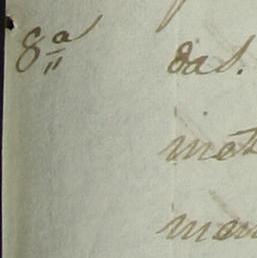 8ª das.
met
men